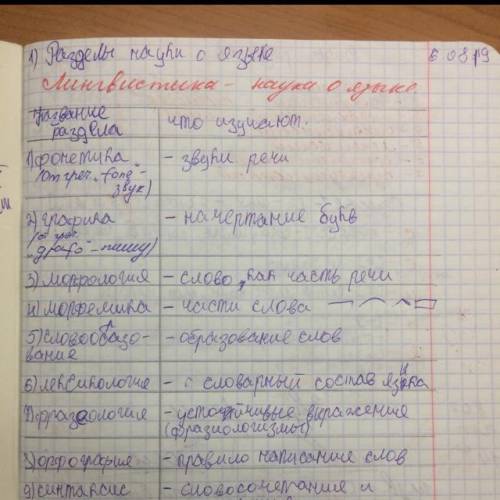 1) Разделы науки о языке
6 08 19
Лингвистика – наука о языке
Название раздела что изучают
1) фонетика – звуки речи
(от греч. „fone" – звук)
2) графика – начертание букв
(о греч. „grafo" – пишу)
3) морфология – слово, как часть речи
4) морфемика – части слова
5) словообразование – образование слов
6) лексикология – словарный состав языка
7) фразеология – устойчивые выражения
(фразиологизмы)
8) орфография – правило написание слов
9) синтаксис – словосочетание и